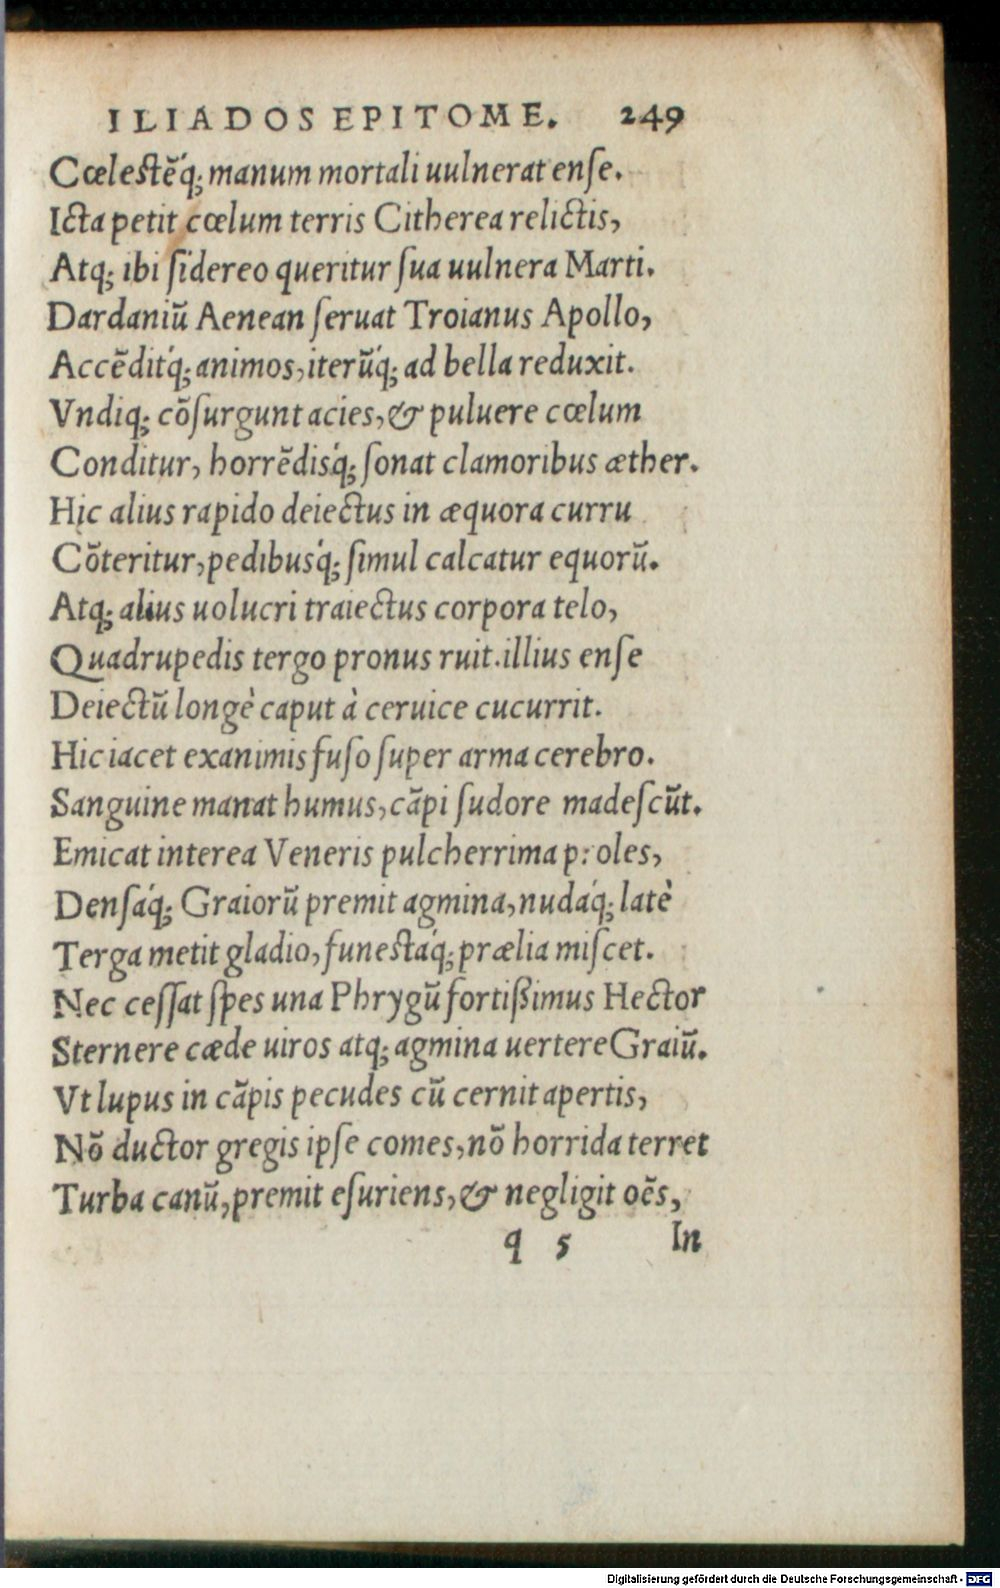 ILIADOS EPITOME. 249
Cœlestẽq́; manum mortali uulnerat enſe.
Icta petit cœlum terris Citherea relictis,
Atq; ibi ſidereo queritur ſua uulnera Marti.
Dardaniũ Aenean ſeruat Troianus Apollo,
Accẽditq́; animos, iterũq́; ad bella reduxit.
Vndiq; cõſurgunt acies, & puluere cœlum
Conditur, horrẽdisq́; ſonat clamoribus æther.
Hic alius rapido deiectus in æquora curru
Cõteritur, pedibusq́; ſimul calcatur equorũ.
Atq; alius uolucri traiectus corpora telo,
Quadrupedis tergo pronus ruit. illius enſe
Deiectũ longè caput à ceruice cucurrit.
Hic iacet exanimis fuſo ſuper arma cerebro.
Sanguine manat humus, cãpi ſudore madeſcũt.
Emicat interea Veneris pulcherrima proles,
Denſaq́; Graiorũ premit agmina, nudaq́; latè
Terga metit gladio, funestaq́; prælia miſcet.
Nec ceſſat ſpes una Phrygũ fortißimus Hector
Sternere cæde uiros atq; agmina uertere Graiũ.
Vt lupus in cãpis pecudes cũ cernit apertis,
Nõ ductor gregis ipſe comes, nõ horrida terret
Turba canũ, premit eſuriens, & negligit oẽs,
q 5 In
Digitalisierung gefördert durch die Deutsche Forschungsgemeinschaft - DFG